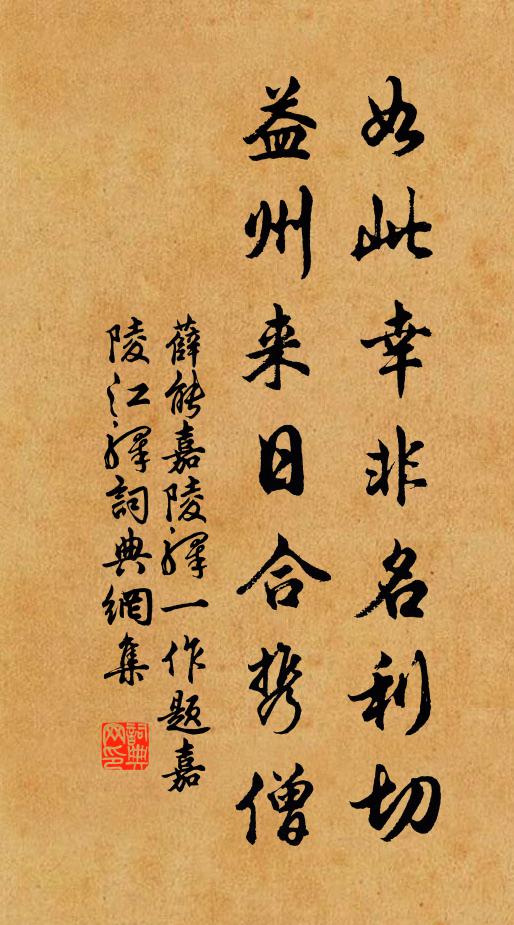 如此幸非名利切
益州来日合携僧
薛能嘉陵驛一作题嘉
陵江驛詞典網集
詞典网印